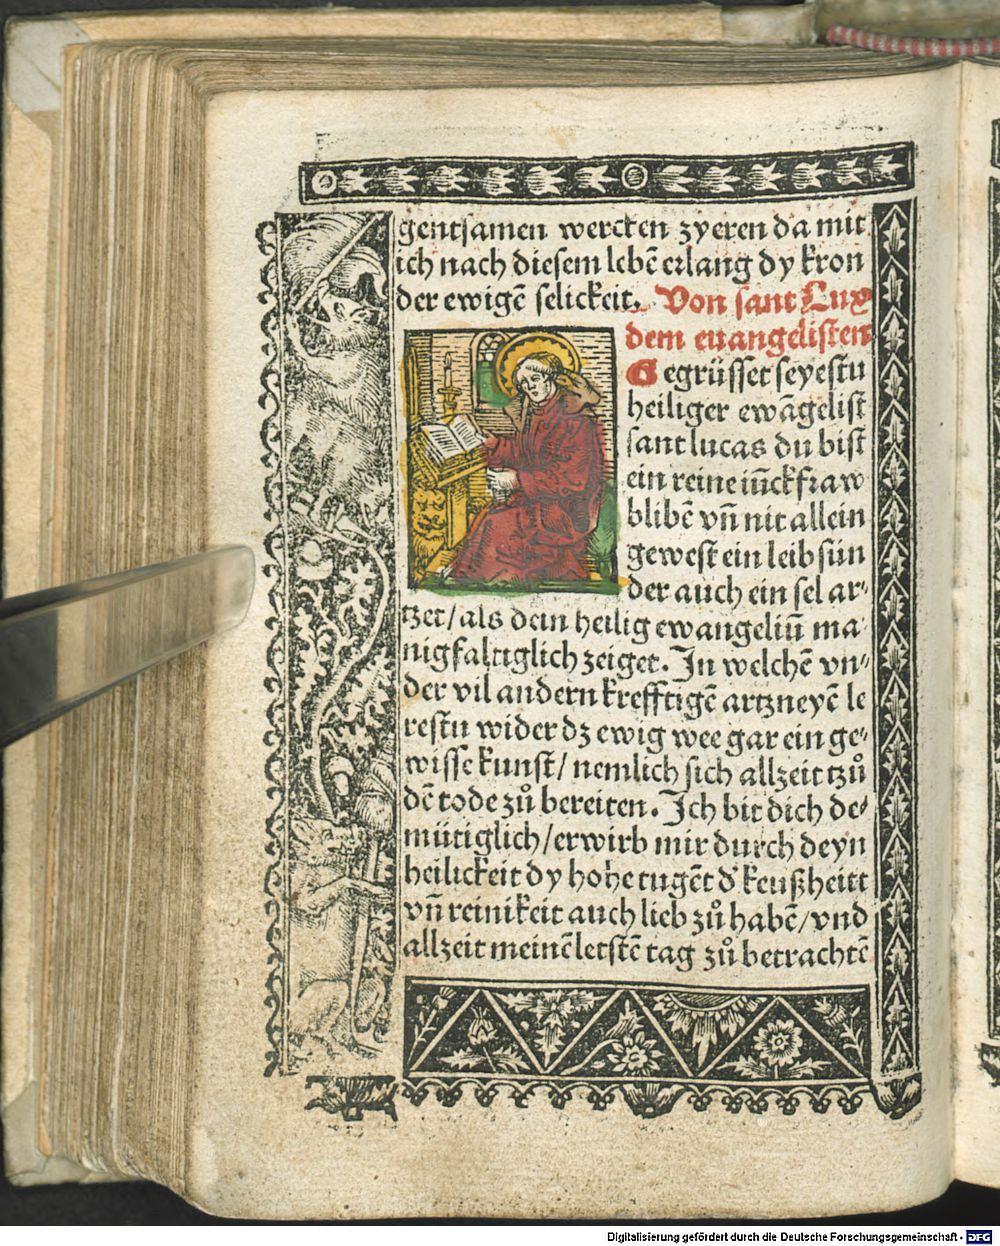 gentsamen wercken zyeren da mit
ich nach diesem lebē erlang dy kron
der ewigē selickeit. Von sant Lux
dem euangelisten
Gegrüsset seyestu
heiliger ewāgelist
sant lucas du bist
ein reine iūckfraw
blibē vn̄ nit allein
gewest ein leib sün
der auch ein sel ar⸗
tzet/ als dein heilig ewangeliū ma⸗
nigfaltiglich zeiget. In welchē vn⸗
der vil andern krefftigē artzneyē le
restu wider dz ewig wee gar ein ge⸗
wisse kunst/ nemlich sich allzeit tzů
dē tode zů bereiten. Ich bit dich de⸗
mütiglich/ erwirb mir durch deyn
heilickeit dy hohe tugēt d' keußheitt
vn̄ reinikeit auch lieb zů habē/ vnd
allzeit meinē letstē tag zů betrachtē
Digitalisierung gefördert durch die Deutsche Forschungsgemeinschaft - DFG